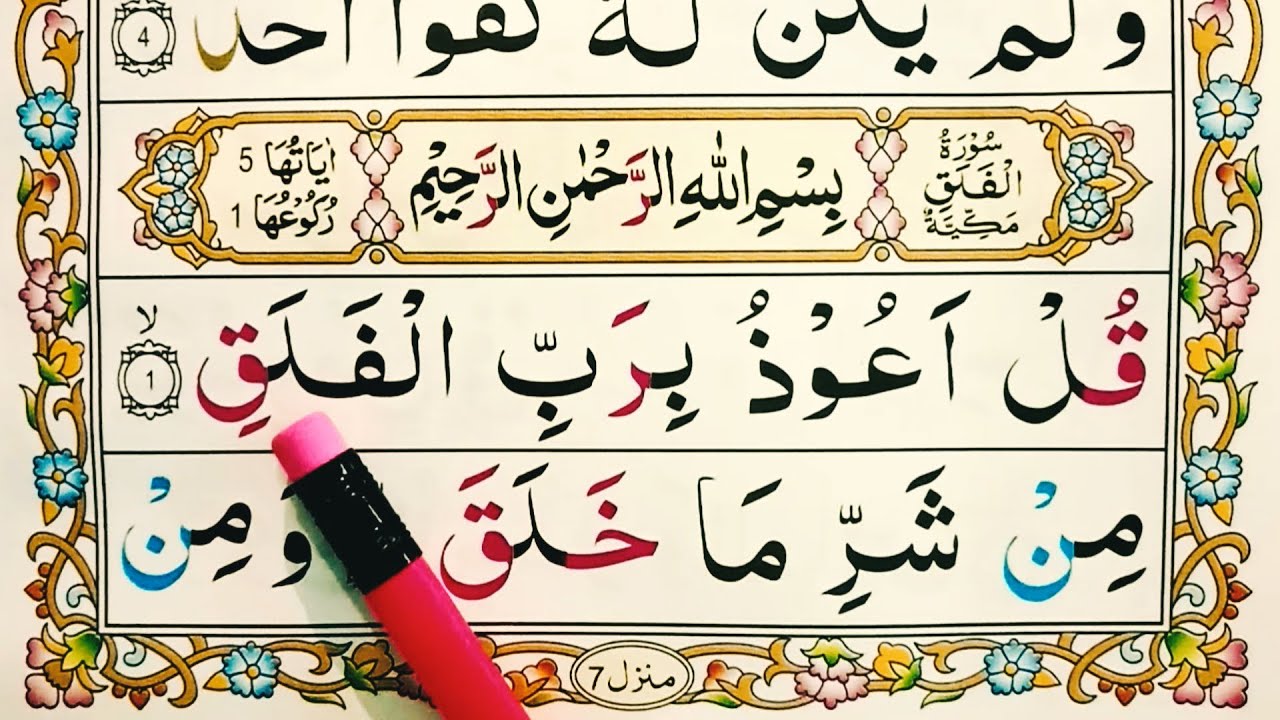 وَلَمْ يَكُنْ لَّهٗ كُفُوًا اَحَدٌ 4
سُوْرَةُ الْفَلَقِ مَكِّيَّةٌ
بِسْمِ اللهِ الرَّحْمٰنِ الرَّحِيْمِ
اٰيَاتُهَا 5
رُكُوْعُهَا 1
قُلْ اَعُوْذُ بِرَبِّ الْفَلَقِ لا 1
مِنْ شَرِّ مَا خَلَقَ وَمِنْ
منزل 7